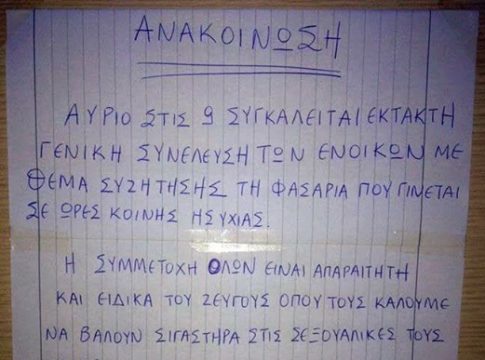 ΑΝΑΚΟΙΝΩΣΗ
ΑΥΡΙΟ ΣΤΙΣ 9 ΣΥΓΚΑΛΕΙΤΑΙ ΕΚΤΑΚΤΗ
ΓΕΝΙΚΗ ΣΥΝΕΛΕΥΣΗ ΤΩΝ ΕΝΟΙΚΩΝ ΜΕ
ΘΕΜΑ ΣΥΖΗΤΗΣΗΣ ΤΗ ΦΑΣΑΡΙΑ ΠΟΥ ΓΙΝΕΤΑΙ
ΣΕ ΩΡΕΣ ΚΟΙΝΗΣ ΗΣΥΧΙΑΣ.
Η ΣΥΜΜΕΤΟΧΗ ΟΛΩΝ ΕΙΝΑΙ ΑΠΑΡΑΙΤΗΤΗ
ΚΑΙ ΕΙΔΙΚΑ ΤΟΥ ΖΕΥΓΟΥΣ ΟΠΟΥ ΤΟΥΣ ΚΑΛΟΥΜΕ
ΝΑ ΒΑΛΟΥΝ ΣΙΓΑΣΤΗΡΑ ΣΤΙΣ ΣΕΞΟΥΑΛΙΚΕΣ ΤΟΥΣ